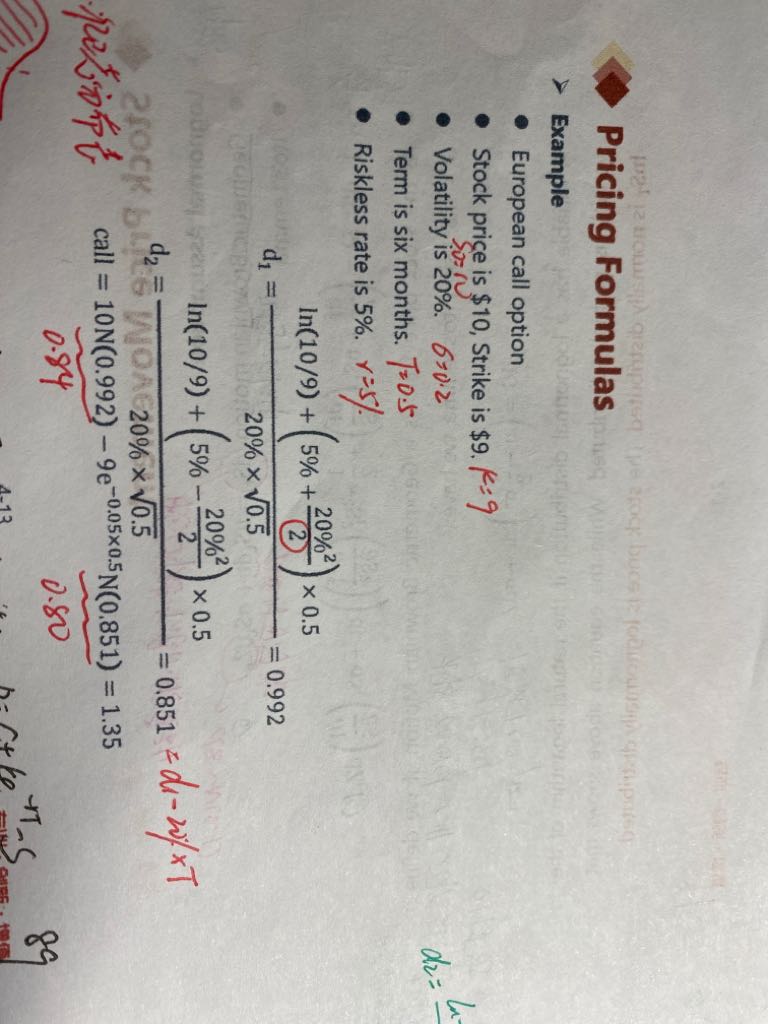 Pricing Formulas
Example
European call option
Stock price is $10, Strike is $9. K=9
S0=10
Volatility is 20%. σ=0.2
Term is six months. T=0.5
Riskless rate is 5%. r=5%
d₁ = (ln(10/9) + (5% + 20%²/2) × 0.5) / (20% × √0.5) = 0.992
d₂ = (ln(10/9) + (5% − 20%²/2) × 0.5) / (20% × √0.5) = 0.851 = d₁ - 20% × T
call = 10N(0.992) − 9e^−0.05×0.5 N(0.851) = 1.35
0.84 0.80
4-13
89
d₂ = ln